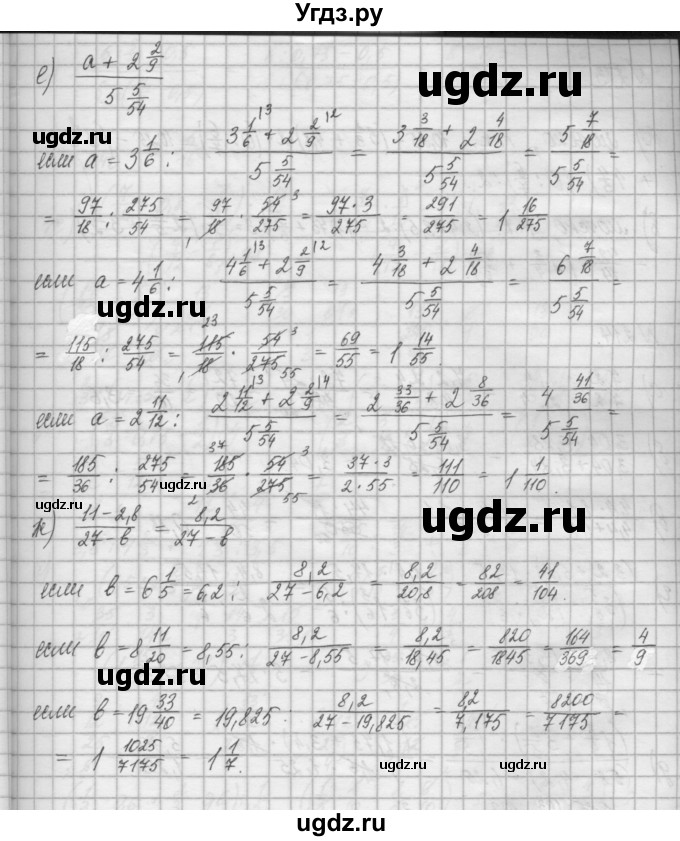 Угдз.ру
е) (a + 2 2/9) / (5 5/54)
ugdz.ru
ugdz.ru
если a = 3 1/6 : (3 1/6 |3 + 2 2/9 |2) / (5 5/54) = (3 3/18 + 2 4/18) / (5 5/54) = (5 7/18) / (5 5/54) =
= 97/18 : 275/54 = 97/18 1 · 54 3/275 = 97·3/275 = 291/275 = 1 16/275
ugdz.ru
если a = 4 1/6 : (4 1/6 |3 + 2 2/9 |2) / (5 5/54) = (4 3/18 + 2 4/18) / (5 5/54) = (6 7/18) / (5 5/54) =
ugdz.ru
= 115/18 : 275/54 = 115 23/18 1 · 54 3/275 55 = 69/55 = 1 14/55.
ugdz.ru
если a = 2 11/12 : (2 11/12 |3 + 2 2/9 |4) / (5 5/54) = (2 33/36 + 2 8/36) / (5 5/54) = (4 41/36) / (5 5/54) =
= 185/36 : 275/54 = 185 37/36 2 · 54 3/275 55 = 37·3/2·55 = 111/110 = 1 1/110.
ugdz.ru
ugdz.ru
ugdz.ru
ж) (11 – 2,8)/(27 – в) = 8,2/(27 – в)
если в = 6 1/5 = 6,2 : 8,2/(27 – 6,2) = 8,2/20,8 = 82/208 = 41/104.
если в = 8 11/20 = 8,55 : 8,2/(27 – 8,55) = 8,2/18,45 = 820/1845 = 164/369 = 4/9
ugdz.ru
ugdz.ru
если в = 19 33/40 = 19,825 : 8,2/(27 – 19,825) = 8,2/7,175 = 8200/7175 =
= 1 1025/7175 = 1 1/7.
ugdz.ru
ugdz.ru
ugdz.ru